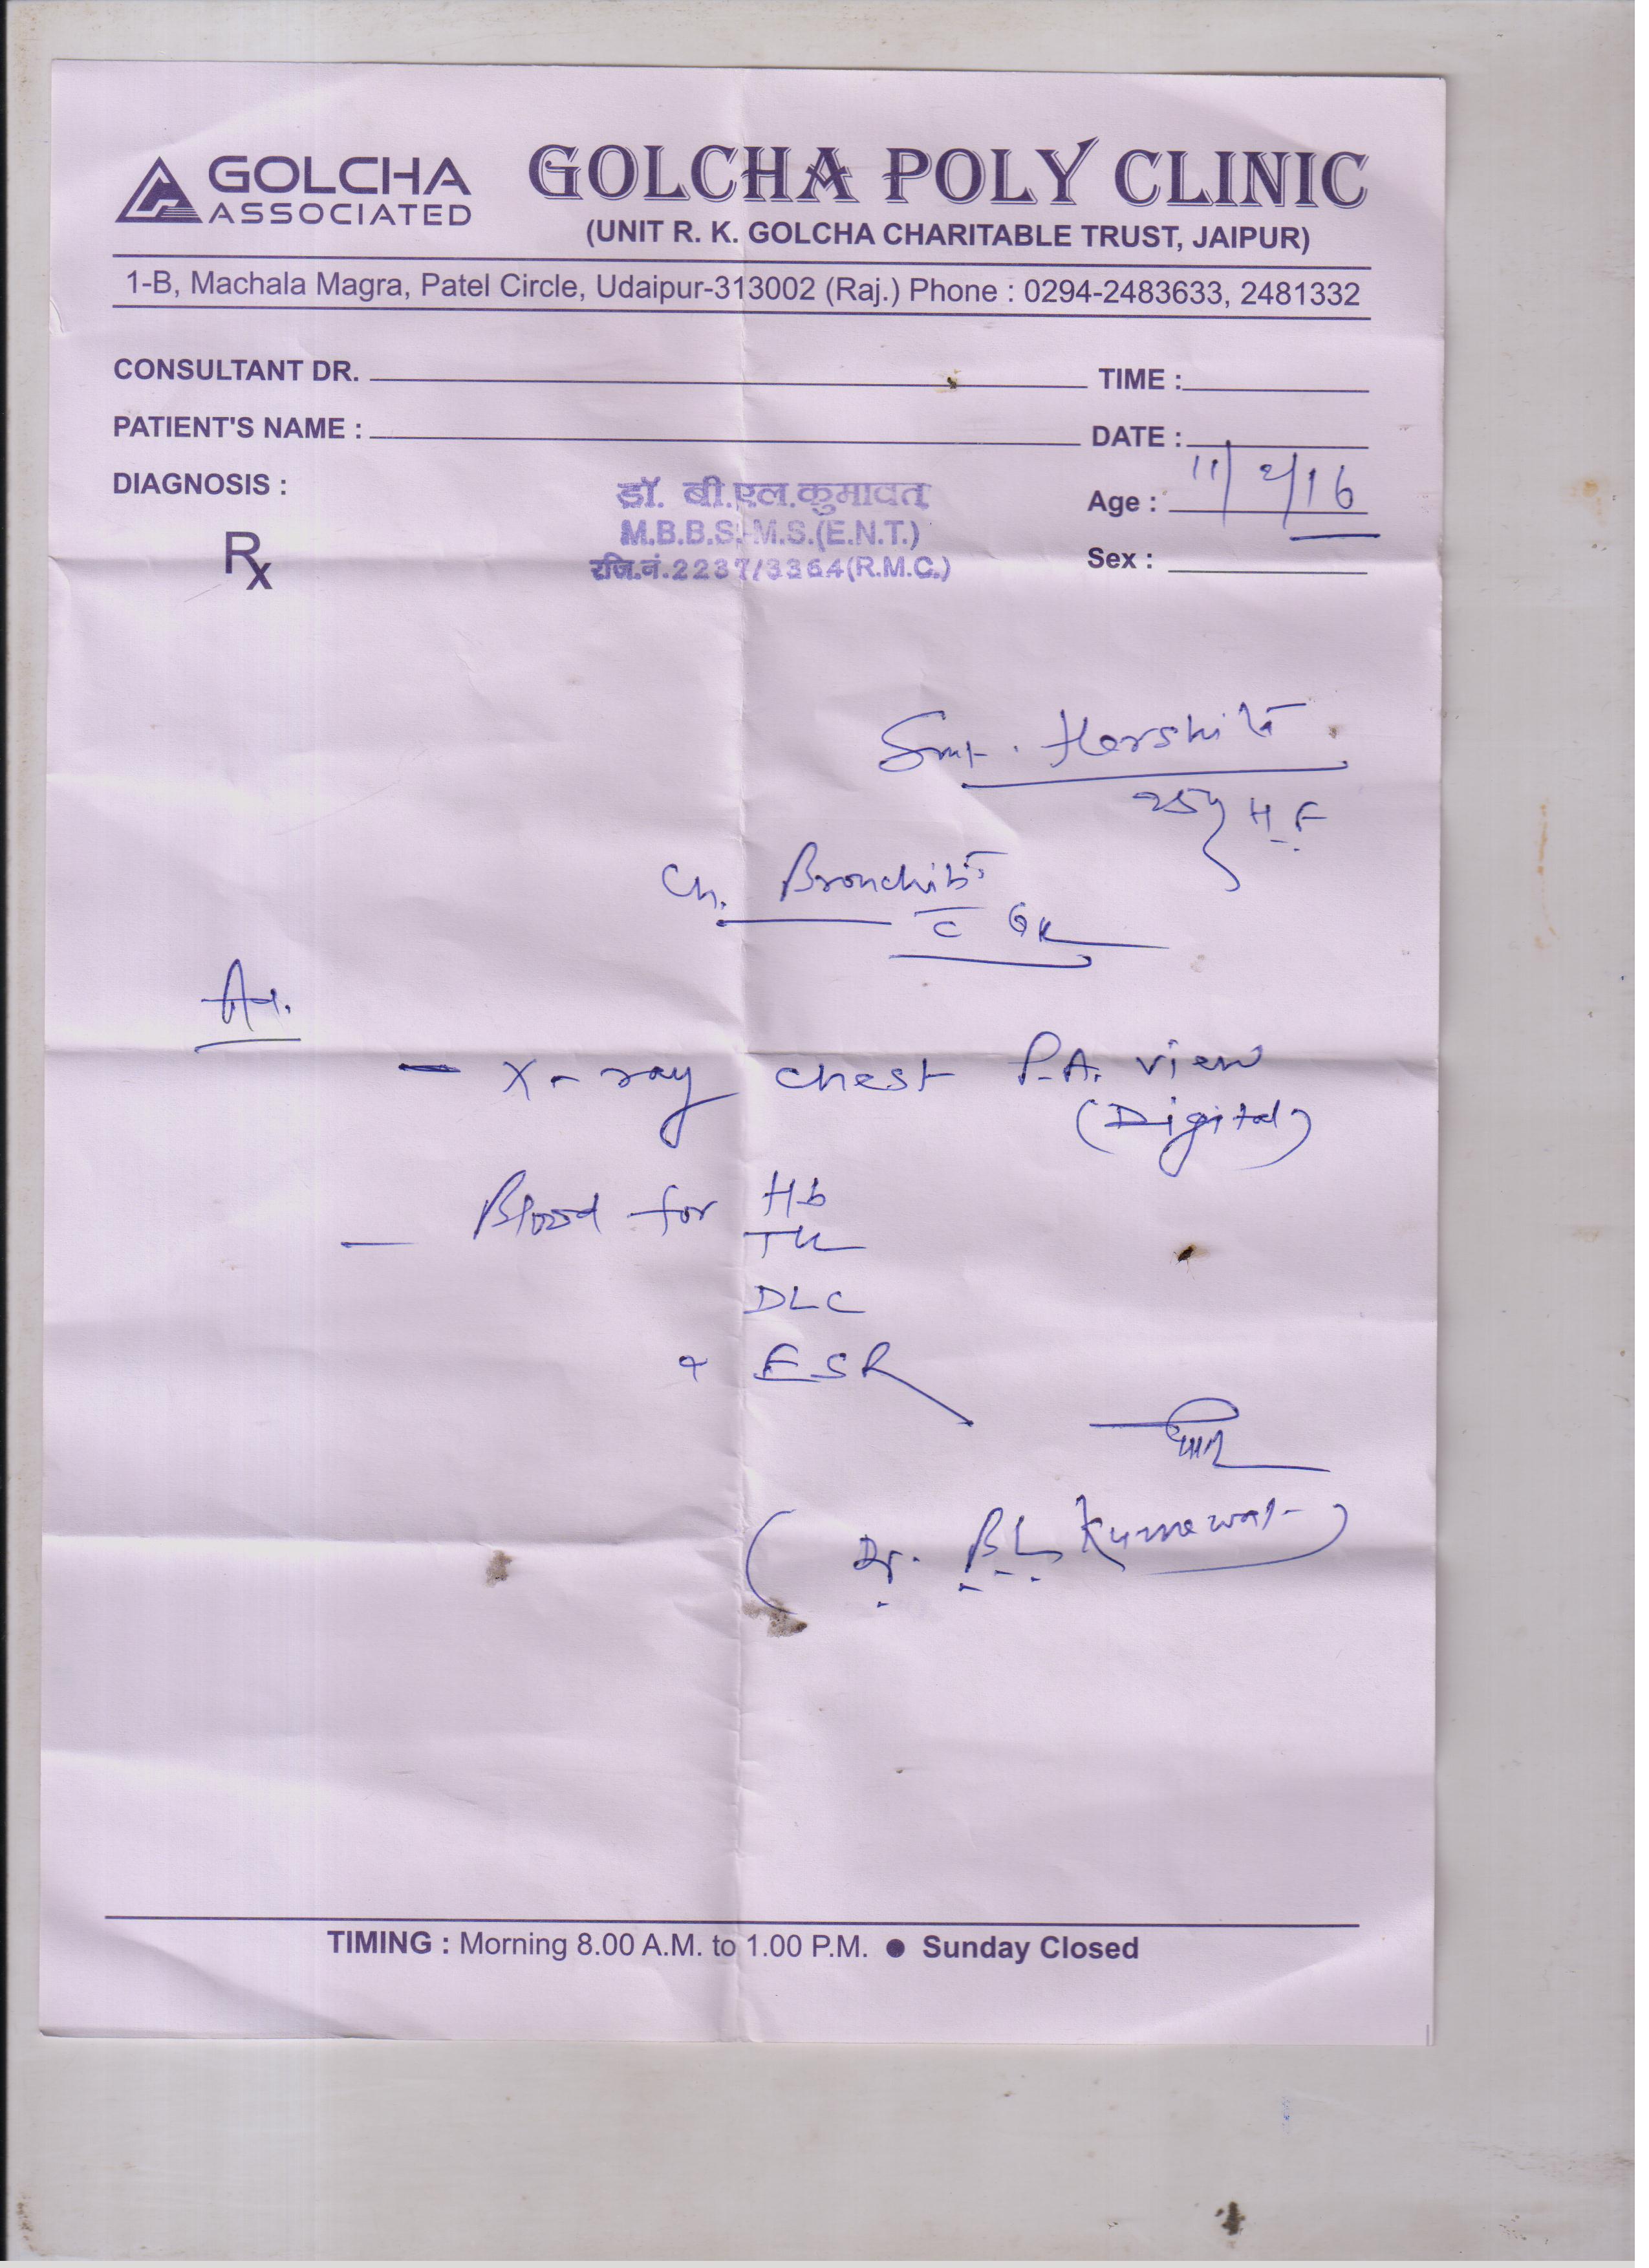 GOLCHA
ASSOCIATED
GOLCHA POLY CLINIC
(UNIT R. K. GOLCHA CHARITABLE TRUST, JAIPUR)
1-B, Machala Magra, Patel Circle, Udaipur-313002 (Raj.) Phone : 0294-2483633, 2481332
CONSULTANT DR. TIME :
PATIENT'S NAME : DATE :
DIAGNOSIS :
11/2/16
Age :
Sex :
Rx
डॉ. बी.एल.कुमावत
M.B.B.S. M.S.(E.N.T.)
रजि.नं.2237/3364(R.M.C.)
Smt. Harshita
25y H F
Ch. Bronchitis
c
- X-ray chest P.A. view
(Digital)
- Blood for Hb
DLC
& ESR
(Dr. B L Kumawat)
TIMING : Morning 8.00 A.M. to 1.00 P.M. ● Sunday Closed